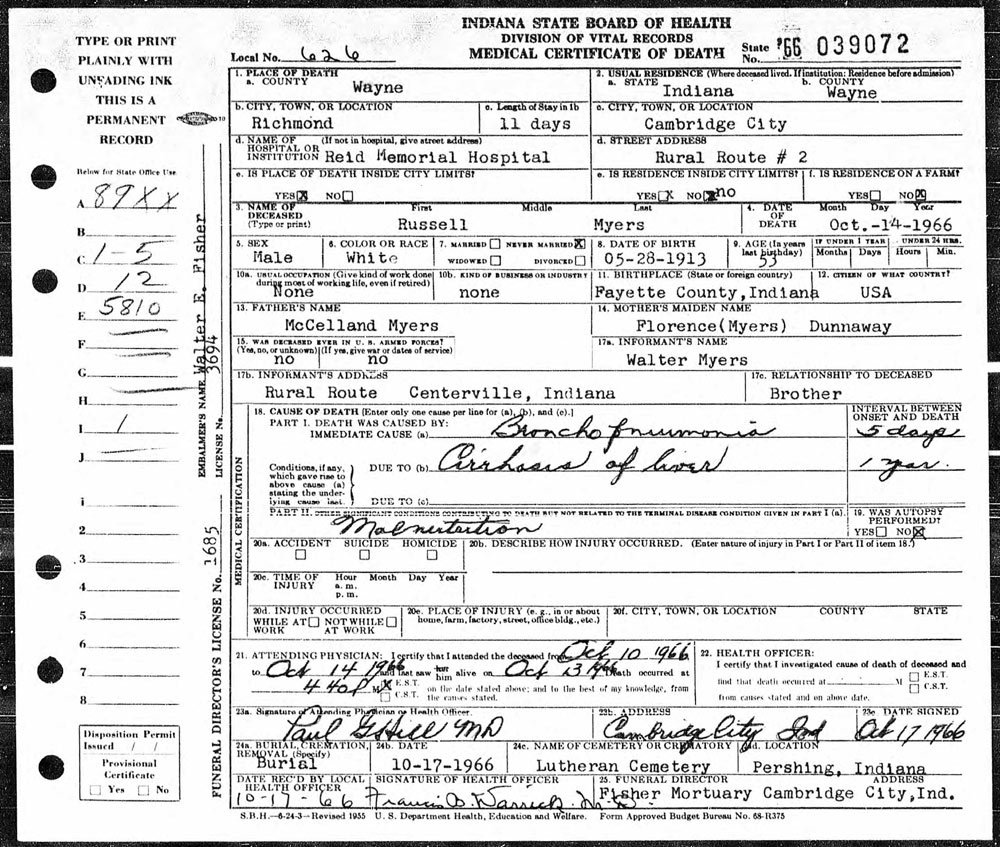 INDIANA STATE BOARD OF HEALTH
DIVISION OF VITAL RECORDS
MEDICAL CERTIFICATE OF DEATH
Local No. 626
State No. '66 039072
TYPE OR PRINT
PLAINLY WITH
UNFADING INK
THIS IS A
PERMANENT
RECORD
Below for State Office Use
A 89XX
B
C 1-5
D 12
E 5810
F
G
H
I 1
J
1
2
3
4
5
6
7
8
Disposition Permit
Issued / /
Provisional
Certificate
Yes No
EMBALMER'S NAME Walter E. Fisher
LICENSE No. 3694
FUNERAL DIRECTOR'S LICENSE No. 1685
1. PLACE OF DEATH
a. COUNTY Wayne
2. USUAL RESIDENCE (Where deceased lived. If institution: Residence before admission)
a. STATE Indiana b. COUNTY Wayne
b. CITY, TOWN, OR LOCATION Richmond
c. Length of Stay in 1b 11 days
c. CITY, TOWN, OR LOCATION Cambridge City
d. NAME OF HOSPITAL OR INSTITUTION (If not in hospital, give street address) Reid Memorial Hospital
d. STREET ADDRESS Rural Route # 2
e. IS PLACE OF DEATH INSIDE CITY LIMITS? YES X NO
e. IS RESIDENCE INSIDE CITY LIMITS? YES X NO X no
f. IS RESIDENCE ON A FARM? YES NO X
3. NAME OF DECEASED (Type or print) First Middle Last
Russell Myers
4. DATE OF DEATH Month Day Year
Oct.-14-1966
5. SEX Male
6. COLOR OR RACE White
7. MARRIED NEVER MARRIED X
WIDOWED DIVORCED
8. DATE OF BIRTH 05-28-1913
9. AGE (In years last birthday) 53
IF UNDER 1 YEAR Months Days
UNDER 24 HRS. Hours Min.
10a. USUAL OCCUPATION (Give kind of work done during most of working life, even if retired) None
10b. KIND OF BUSINESS OR INDUSTRY none
11. BIRTHPLACE (State or foreign country) Fayette County, Indiana
12. CITIZEN OF WHAT COUNTRY? USA
13. FATHER'S NAME McCelland Myers
14. MOTHER'S MAIDEN NAME Florence(Myers) Dunnaway
15. WAS DECEASED EVER IN U. S. ARMED FORCES?
(Yes, no, or unknown) (If yes, give war or dates of service)
no no
17a. INFORMANT'S NAME Walter Myers
17b. INFORMANT'S ADDRESS Rural Route Centerville, Indiana
17c. RELATIONSHIP TO DECEASED Brother
MEDICAL CERTIFICATION
18. CAUSE OF DEATH [Enter only one cause per line for (a), (b), and (c).]
PART I. DEATH WAS CAUSED BY:
IMMEDIATE CAUSE (a) Broncho pneumonia
INTERVAL BETWEEN ONSET AND DEATH 5 days
Conditions, if any, which gave rise to above cause (a) stating the underlying cause last.
DUE TO (b) Cirrhosis of liver 1 year.
DUE TO (c)
PART II. OTHER SIGNIFICANT CONDITIONS CONTRIBUTING TO DEATH BUT NOT RELATED TO THE TERMINAL DISEASE CONDITION GIVEN IN PART I (a).
Malnutrition
19. WAS AUTOPSY PERFORMED? YES NO X
20a. ACCIDENT SUICIDE HOMICIDE
20b. DESCRIBE HOW INJURY OCCURRED. (Enter nature of injury in Part I or Part II of item 18.)
20c. TIME OF INJURY Hour Month Day Year
a. m.
p. m.
20d. INJURY OCCURRED
WHILE AT WORK NOT WHILE AT WORK
20e. PLACE OF INJURY (e. g., in or about home, farm, factory, street, office bldg., etc.)
20f. CITY, TOWN, OR LOCATION COUNTY STATE
21. ATTENDING PHYSICIAN: I certify that I attended the deceased from Oct 10 1966
to Oct 14 1966 and last saw her him alive on Oct 13 1966 Death occurred at
4 40 P M X E.S.T. C.S.T. on the date stated above; and to the best of my knowledge, from the causes stated.
22. HEALTH OFFICER:
I certify that I investigated cause of death of deceased and
find that death occurred at M E.S.T. C.S.T.
from causes stated and on above date.
23a. Signature of Attending Physician or Health Officer. Paul G Hill MD
23b. ADDRESS Cambridge City Ind
23c. DATE SIGNED Oct 17 1966
24a. BURIAL, CREMATION, REMOVAL (Specify) Burial
24b. DATE 10-17-1966
24c. NAME OF CEMETERY OR CREMATORY Lutheran Cemetery
24d. LOCATION Pershing, Indiana
DATE REC'D BY LOCAL HEALTH OFFICER 10-17-66
SIGNATURE OF HEALTH OFFICER Francis B. Warrick M.D.
25. FUNERAL DIRECTOR ADDRESS
Fisher Mortuary Cambridge City, Ind.
S.B.H.-6-24-3-Revised 1955 U. S. Department Health, Education and Welfare. Form Approved Budget Bureau No. 68-R375